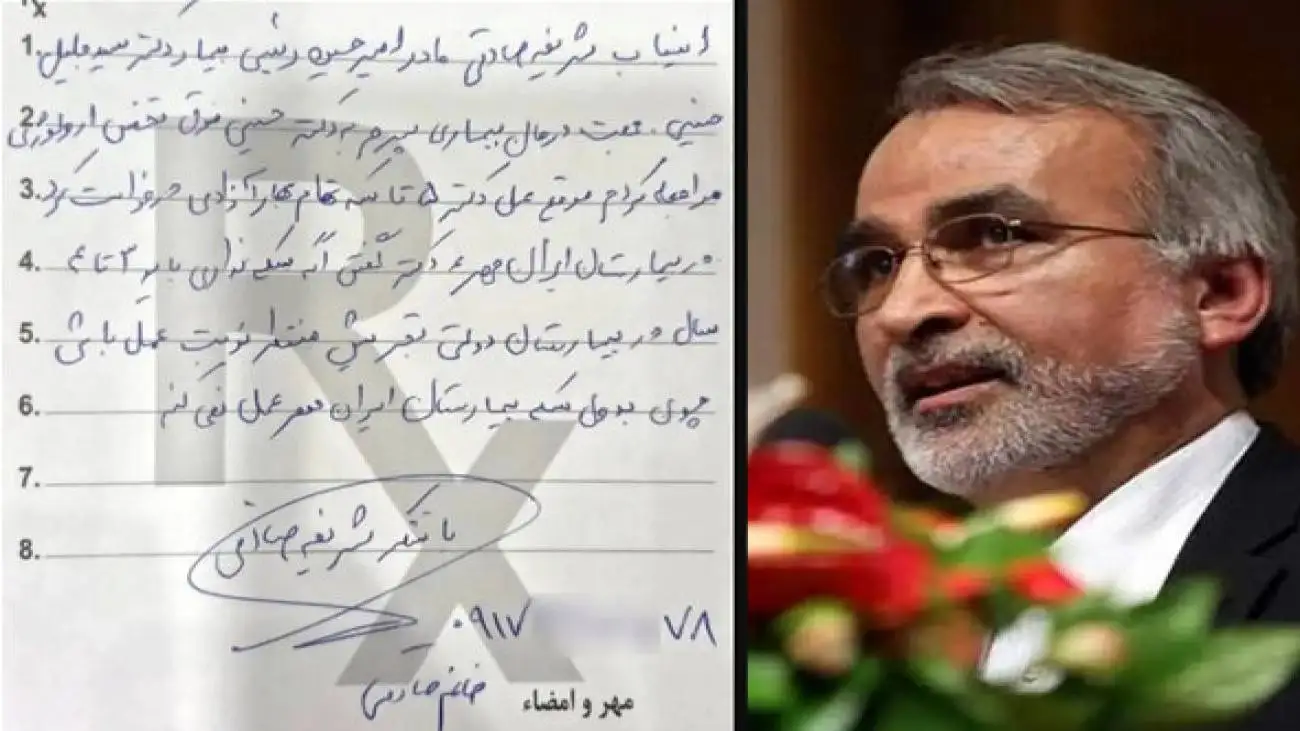 ℞
1. اینجانب شریفه صادقی مادر امیرحسین رئیسی بیمار دکتر سید جلیل
2. حسینی. جهت درمان بیماری پسرم به دکتر حسینی فوق تخصص ارولوژی
3. مراجعه کردم موقع عمل دکتر ۵ تا سکه تمام بهار آزادی درخواست کرد.
4. در بیمارستان ایران مهر، دکتر گفتن اگه سکه نداری باید ۳ تا ۴
5. سال در بیمارستان دولتی تجریش منتظر نوبت عمل باشی
6. بدون سکه بیمارستان ایران مهر عمل نمی‌کنم
7.
8. با تشکر شریفه صادقی
۰۹۱۷ ۷۸
خانم صادقی
مهر و امضاء